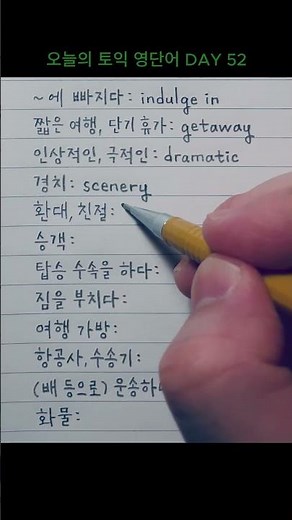 오늘의 토익 영단어 DAY 52
~에 빠지다: indulge in
짧은 여행, 단기 휴가: getaway
인상적인, 극적인: dramatic
경치: scenery
환대, 친절:
승객:
탑승 수속을 하다:
짐을 부치다:
여행 가방:
항공사, 수송기:
(배 등으로)
화물: